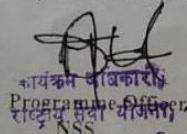 कार्यक्रम अधिकारी,
Programme Officer
राष्ट्रीय सेवा योजना,
NSS